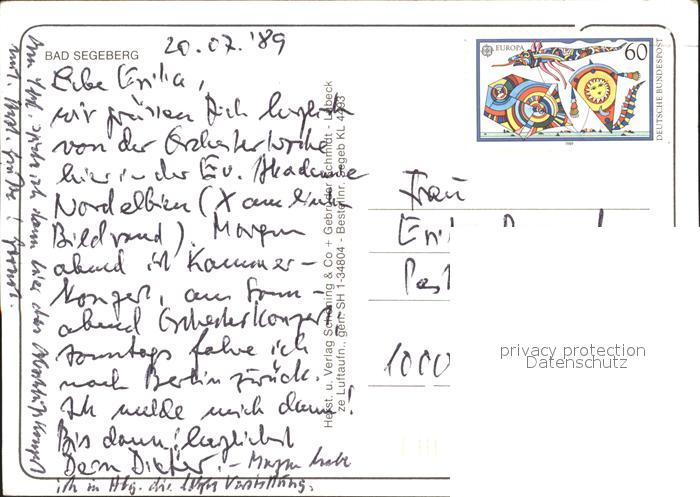 BAD SEGEBERG
20.07.'89
Liebe Emilia,
wir grüßen Dich herzlich
von der Orchesterwoche
hier in der Ev. Akademie
Nordelbien (X am linken
Bildrand). Morgen
abend ist Kammer-
konzert, am Sonn-
abend Orchesterkonzert,
sonntags fahre ich
nach Berlin zurück.
Ich melde mich dann!
Bis dann! herzlichst
Dein Dieter. – Morgen
ich in Hbg. die letzte Vorstellung.
ich dann hier das
Herst. u. Verlag Schöning & Co + Gebrüder Schmidt - Lübeck
ze Luftaufn., gen. SH 1-34804 - Bestellnr. Segeb KL 4293
EUROPA
60
DEUTSCHE BUNDESPOST
1989
Frau
1000
privacy protection
Datenschutz